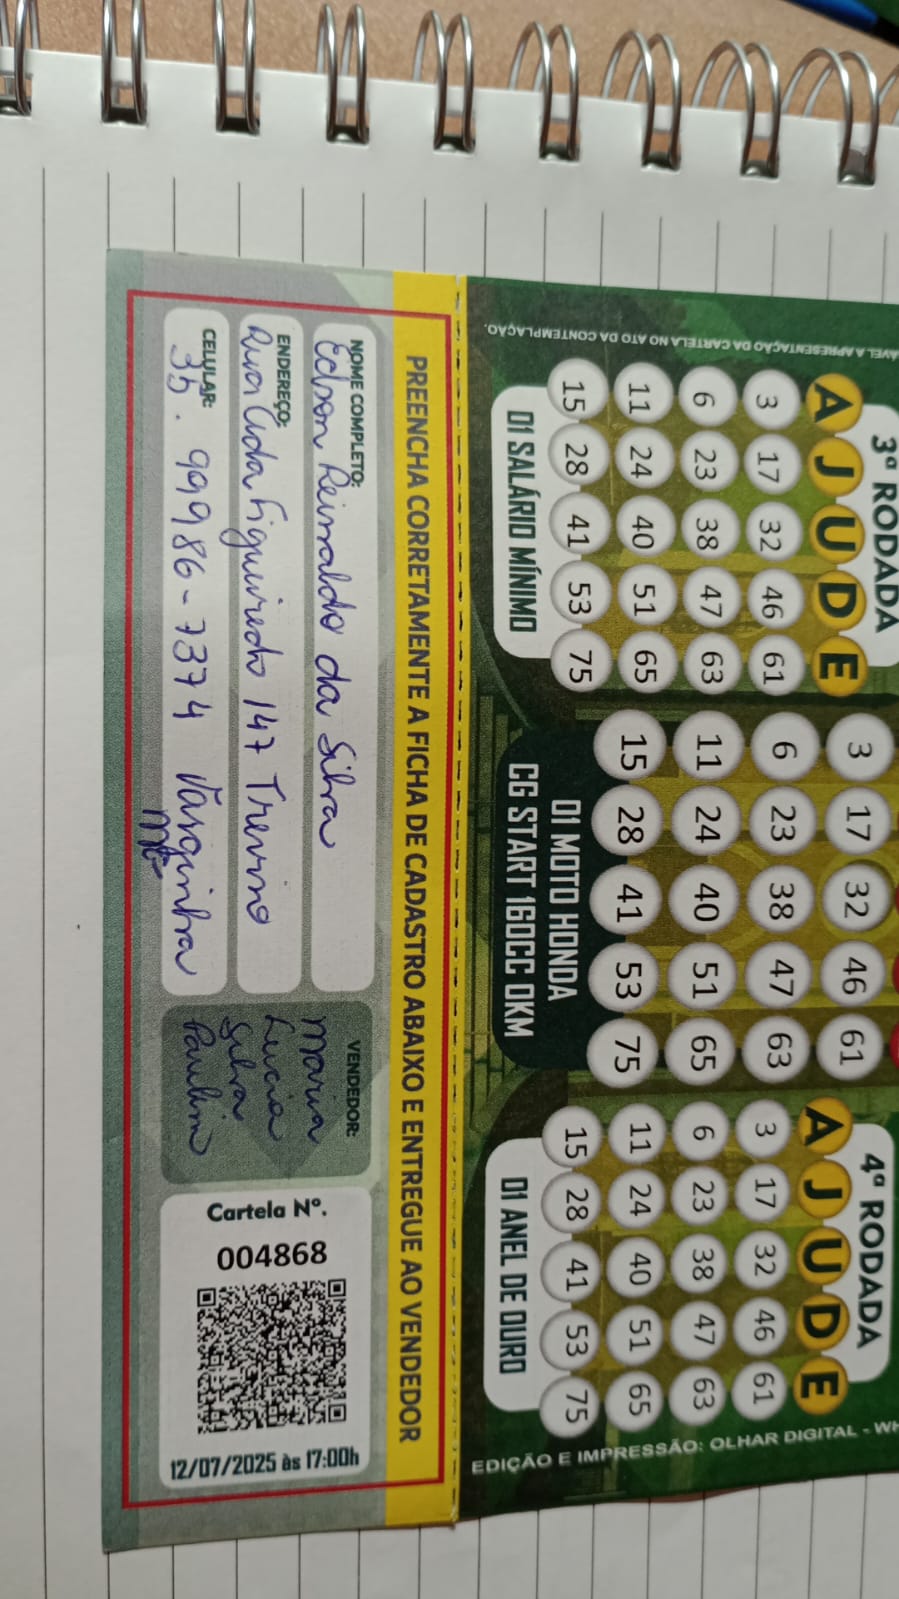 ÁVEL A APRESENTAÇÃO DA CARTELA NO ATO DA CONTEMPLAÇÃO.
3ª RODADA
A J U D E
3 17 32 46 61
6 23 38 47 63
11 24 40 51 65
15 28 41 53 75
01 SALÁRIO MÍNIMO
3 17 32 46 61
6 23 38 47 63
11 24 40 51 65
15 28 41 53 75
01 MOTO HONDA
CG START 160CC 0KM
4ª RODADA
A J U D E
3 17 32 46 61
6 23 38 47 63
11 24 40 51 65
15 28 41 53 75
01 ANEL DE OURO
EDIÇÃO E IMPRESSÃO: OLHAR DIGITAL - WH
PREENCHA CORRETAMENTE A FICHA DE CADASTRO ABAIXO E ENTREGUE AO VENDEDOR
NOME COMPLETO:
Edson Reinaldo da Silva
ENDEREÇO:
Rua Cida Figueiredo 147 Treviso
CELULAR:
35. 99986-7374 Varginha
MG
VENDEDOR:
Maria
Lucia
Silva
Paulin
Cartela Nº.
004868
12/07/2025 às 17:00h